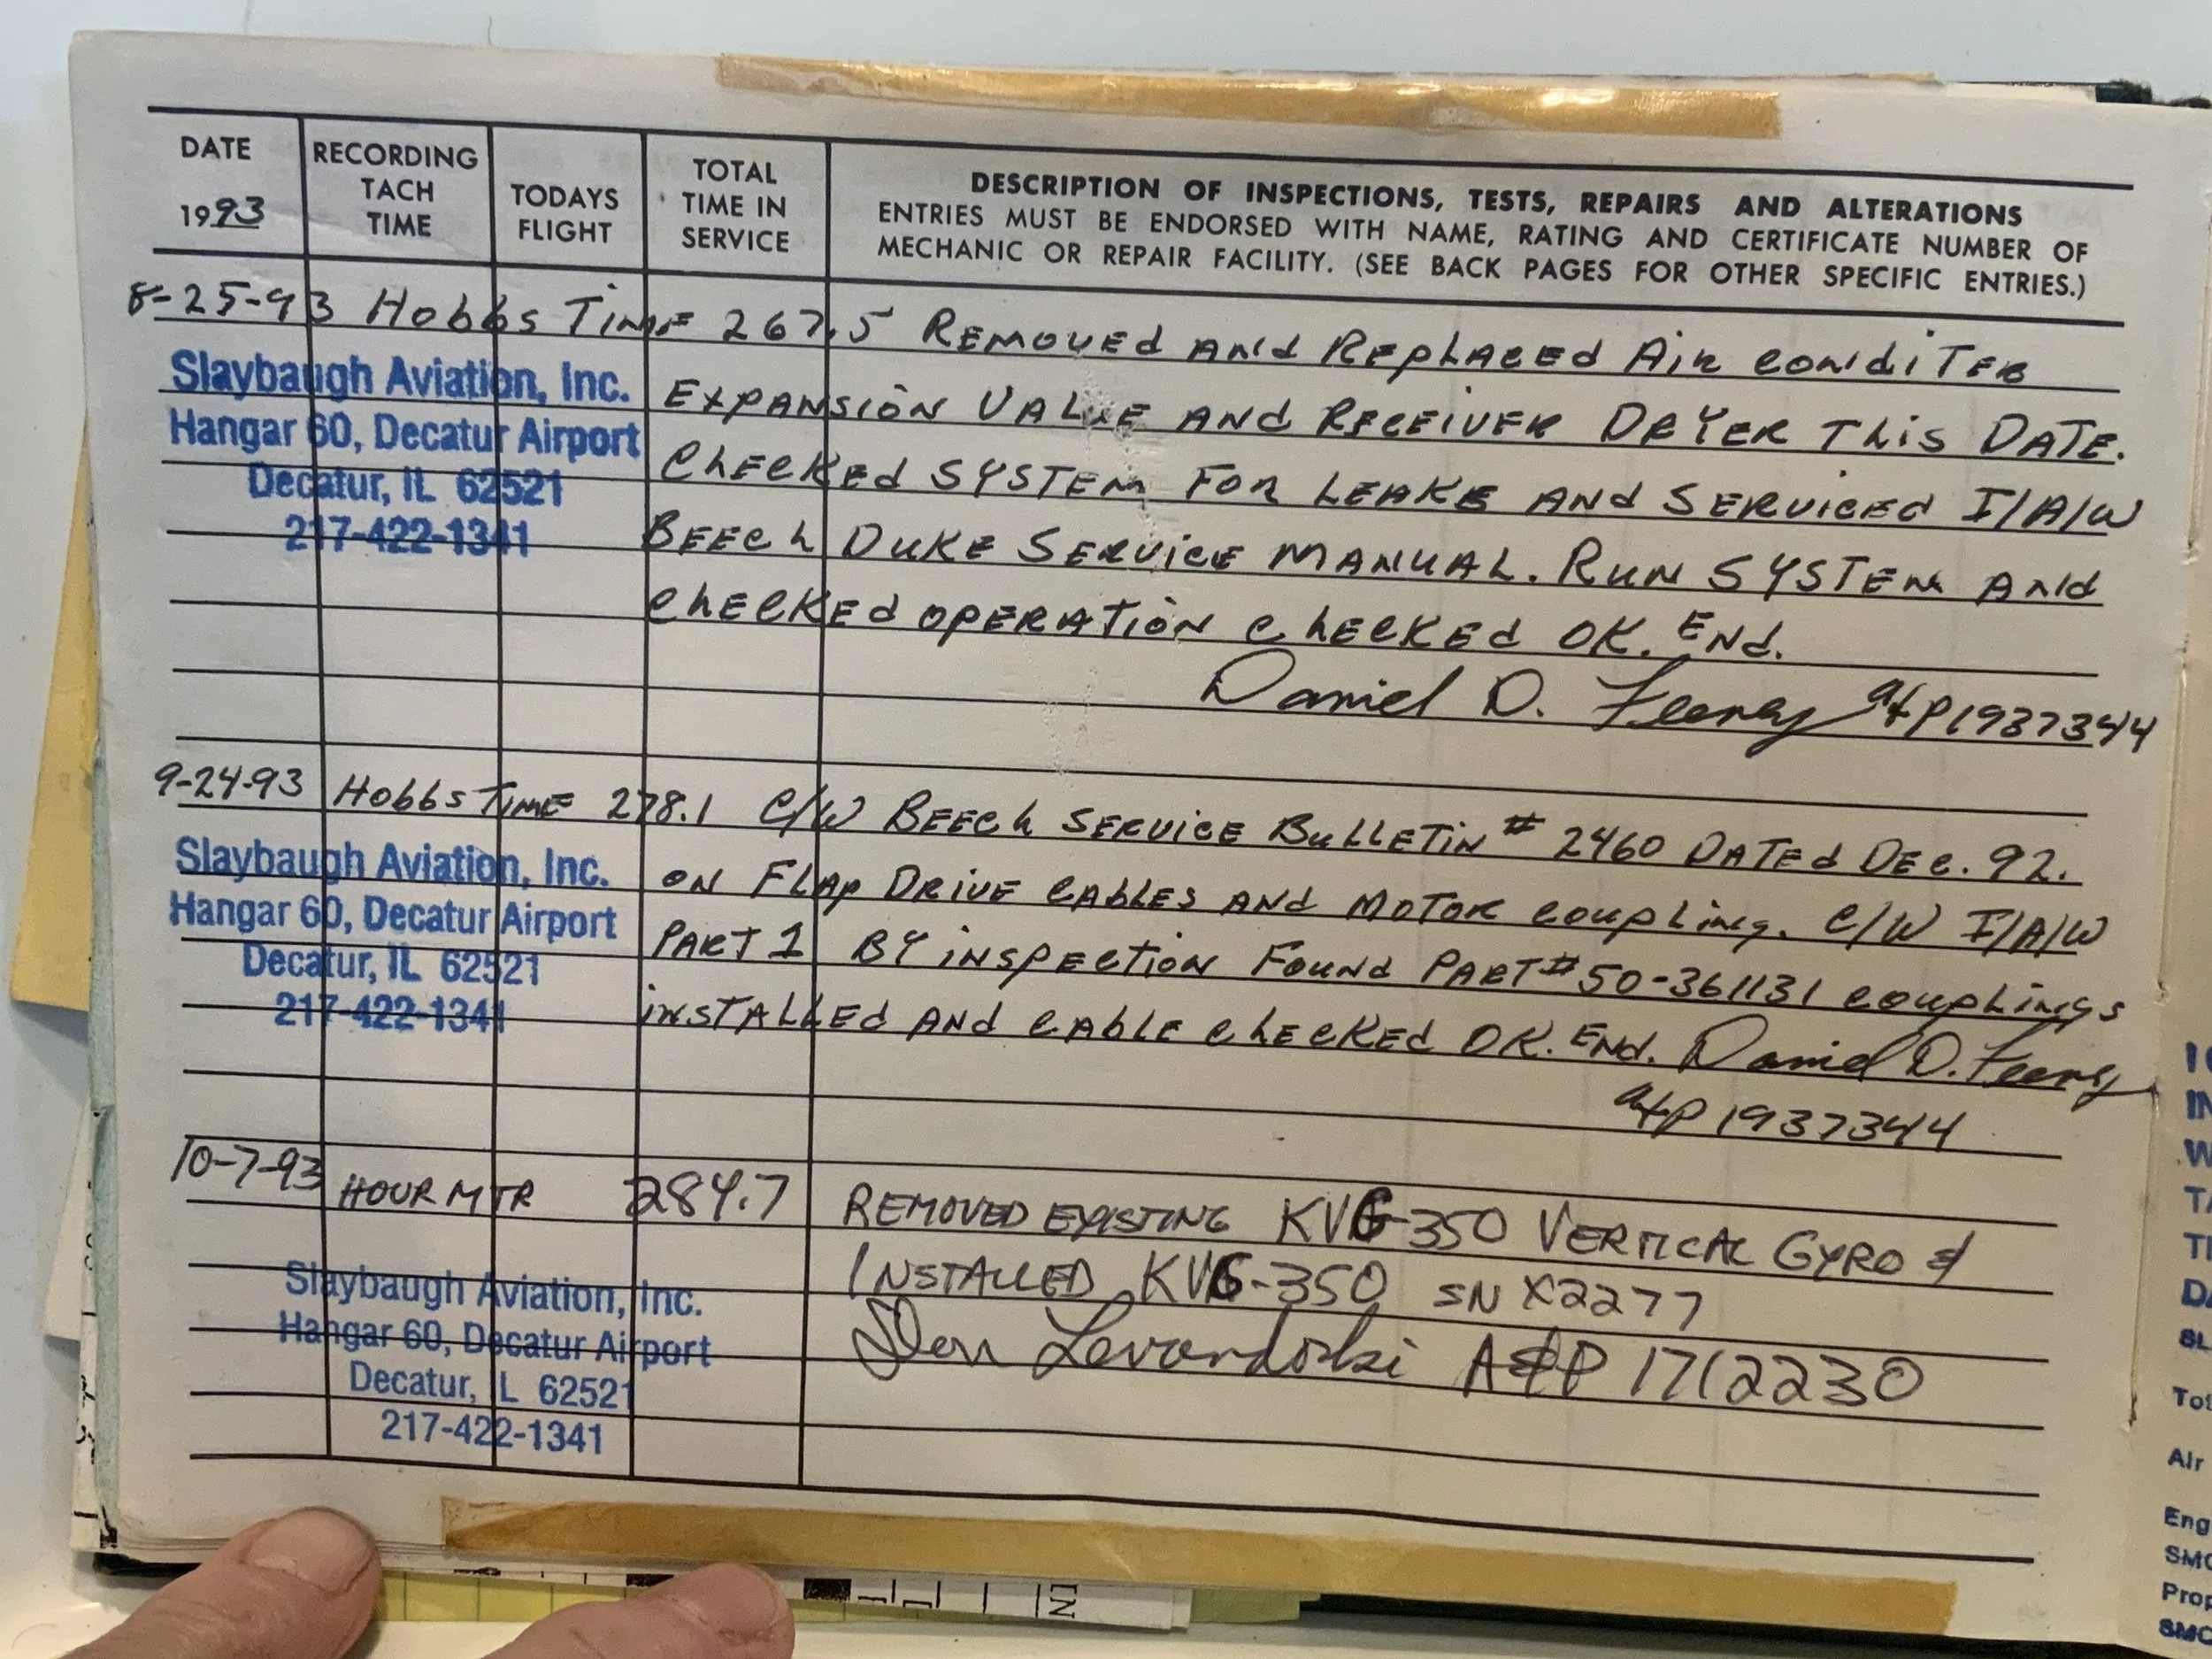 DATE
1993
RECORDING
TACH
TIME
TODAYS
FLIGHT
TOTAL
TIME IN
SERVICE
DESCRIPTION OF INSPECTIONS, TESTS, REPAIRS AND ALTERATIONS
ENTRIES MUST BE ENDORSED WITH NAME, RATING AND CERTIFICATE NUMBER OF
MECHANIC OR REPAIR FACILITY. (SEE BACK PAGES FOR OTHER SPECIFIC ENTRIES.)
8-25-93 Hobbs Time 267.5 Removed and Replaced Air Conditer
Expansion Valve and Receiver Dryer This Date.
Checked System For Leaks and Serviced I/A/W
Beech Duke Service Manual. Run System and
Checked operation Checked OK. End.
Daniel D. Feeney A&P 1937344
Slaybaugh Aviation, Inc.
Hangar 60, Decatur Airport
Decatur, IL 62521
217-422-1341
9-24-93 Hobbs Time 278.1 C/W Beech Service Bulletin # 2460 Dated Dec. 92.
on Flap Drive Cables and Motor Coupling. C/W I/A/W
Part 1 By inspection Found Part # 50-361131 couplings
installed and cable checked OK. End. Daniel D. Feeney
A&P 1937344
Slaybaugh Aviation, Inc.
Hangar 60, Decatur Airport
Decatur, IL 62521
217-422-1341
10-7-93 HOUR MTR 284.7 REMOVED EXISTING KVG-350 VERTICAL GYRO &
INSTALLED KVG-350 SN X2277
Levandoski A&P 1712230
Slaybaugh Aviation, Inc.
Hangar 60, Decatur Airport
Decatur, IL 62521
217-422-1341
Air
Eng
Prop